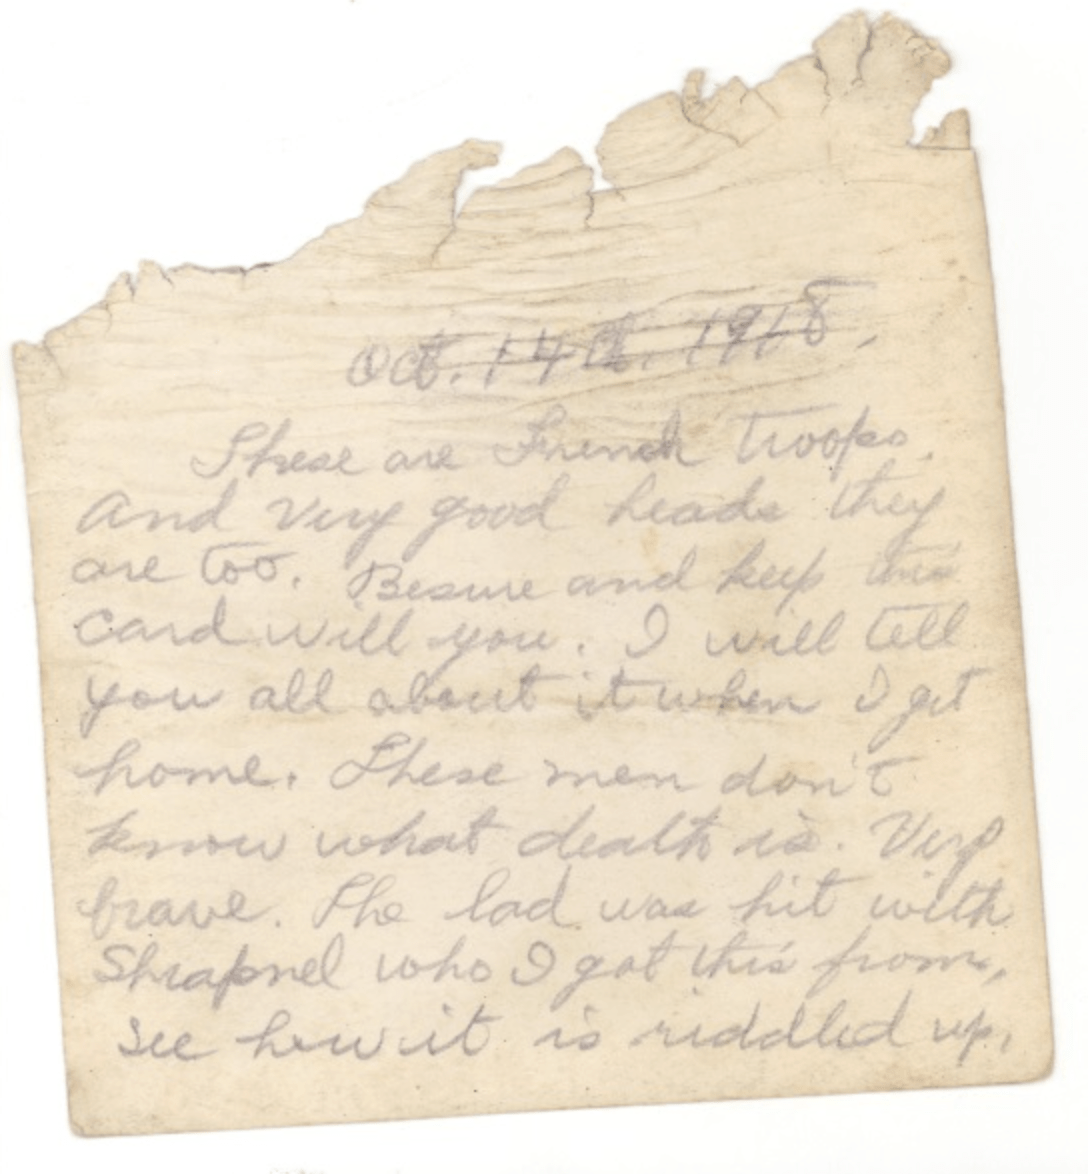 Oct. 14th. 1918.
These are French troops.
And Very good heads they
are too. Besure and keep this
Card will you. I will tell
you all about it when I get
home. These men don't
know what death is. Very
brave. The lad was hit with
Shrapnel who I got this from,
see how it is riddled up.